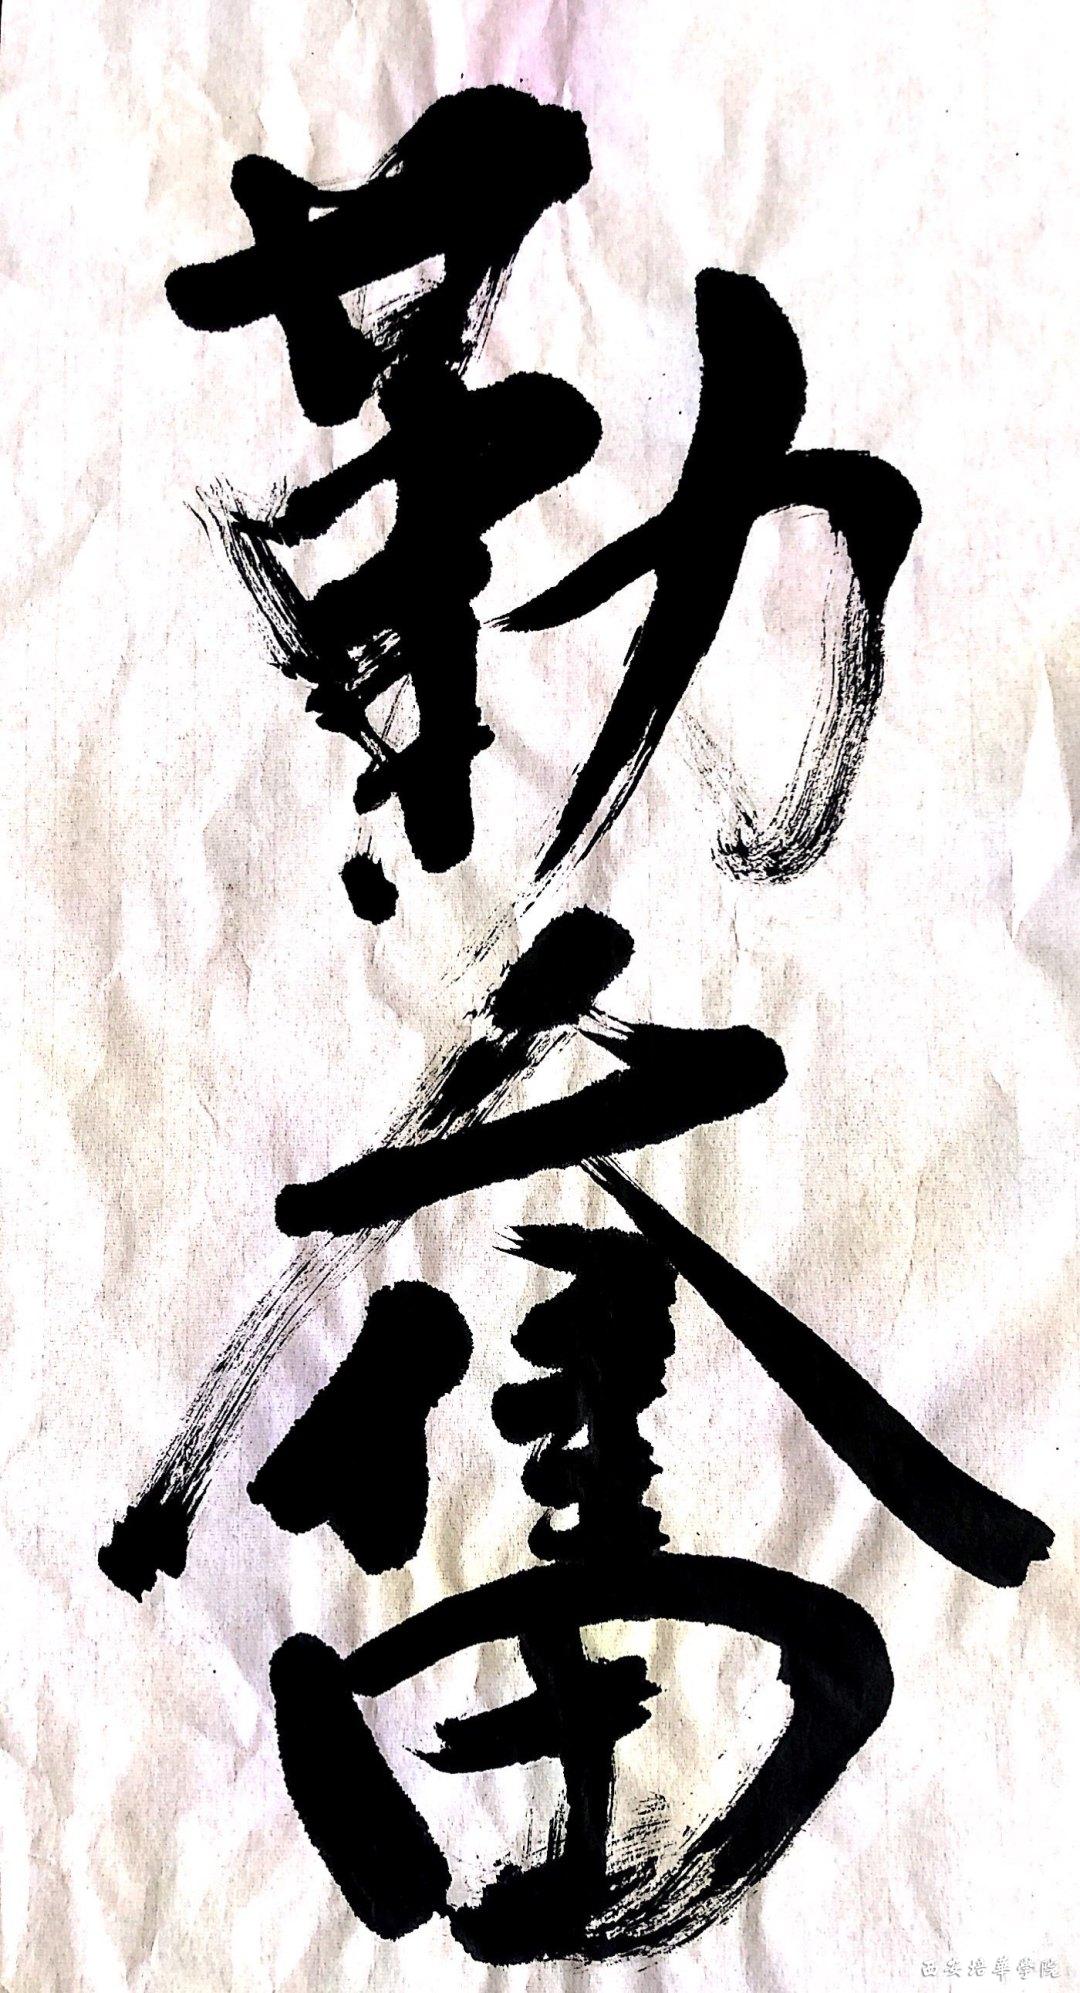 勤奮
西安培華学院